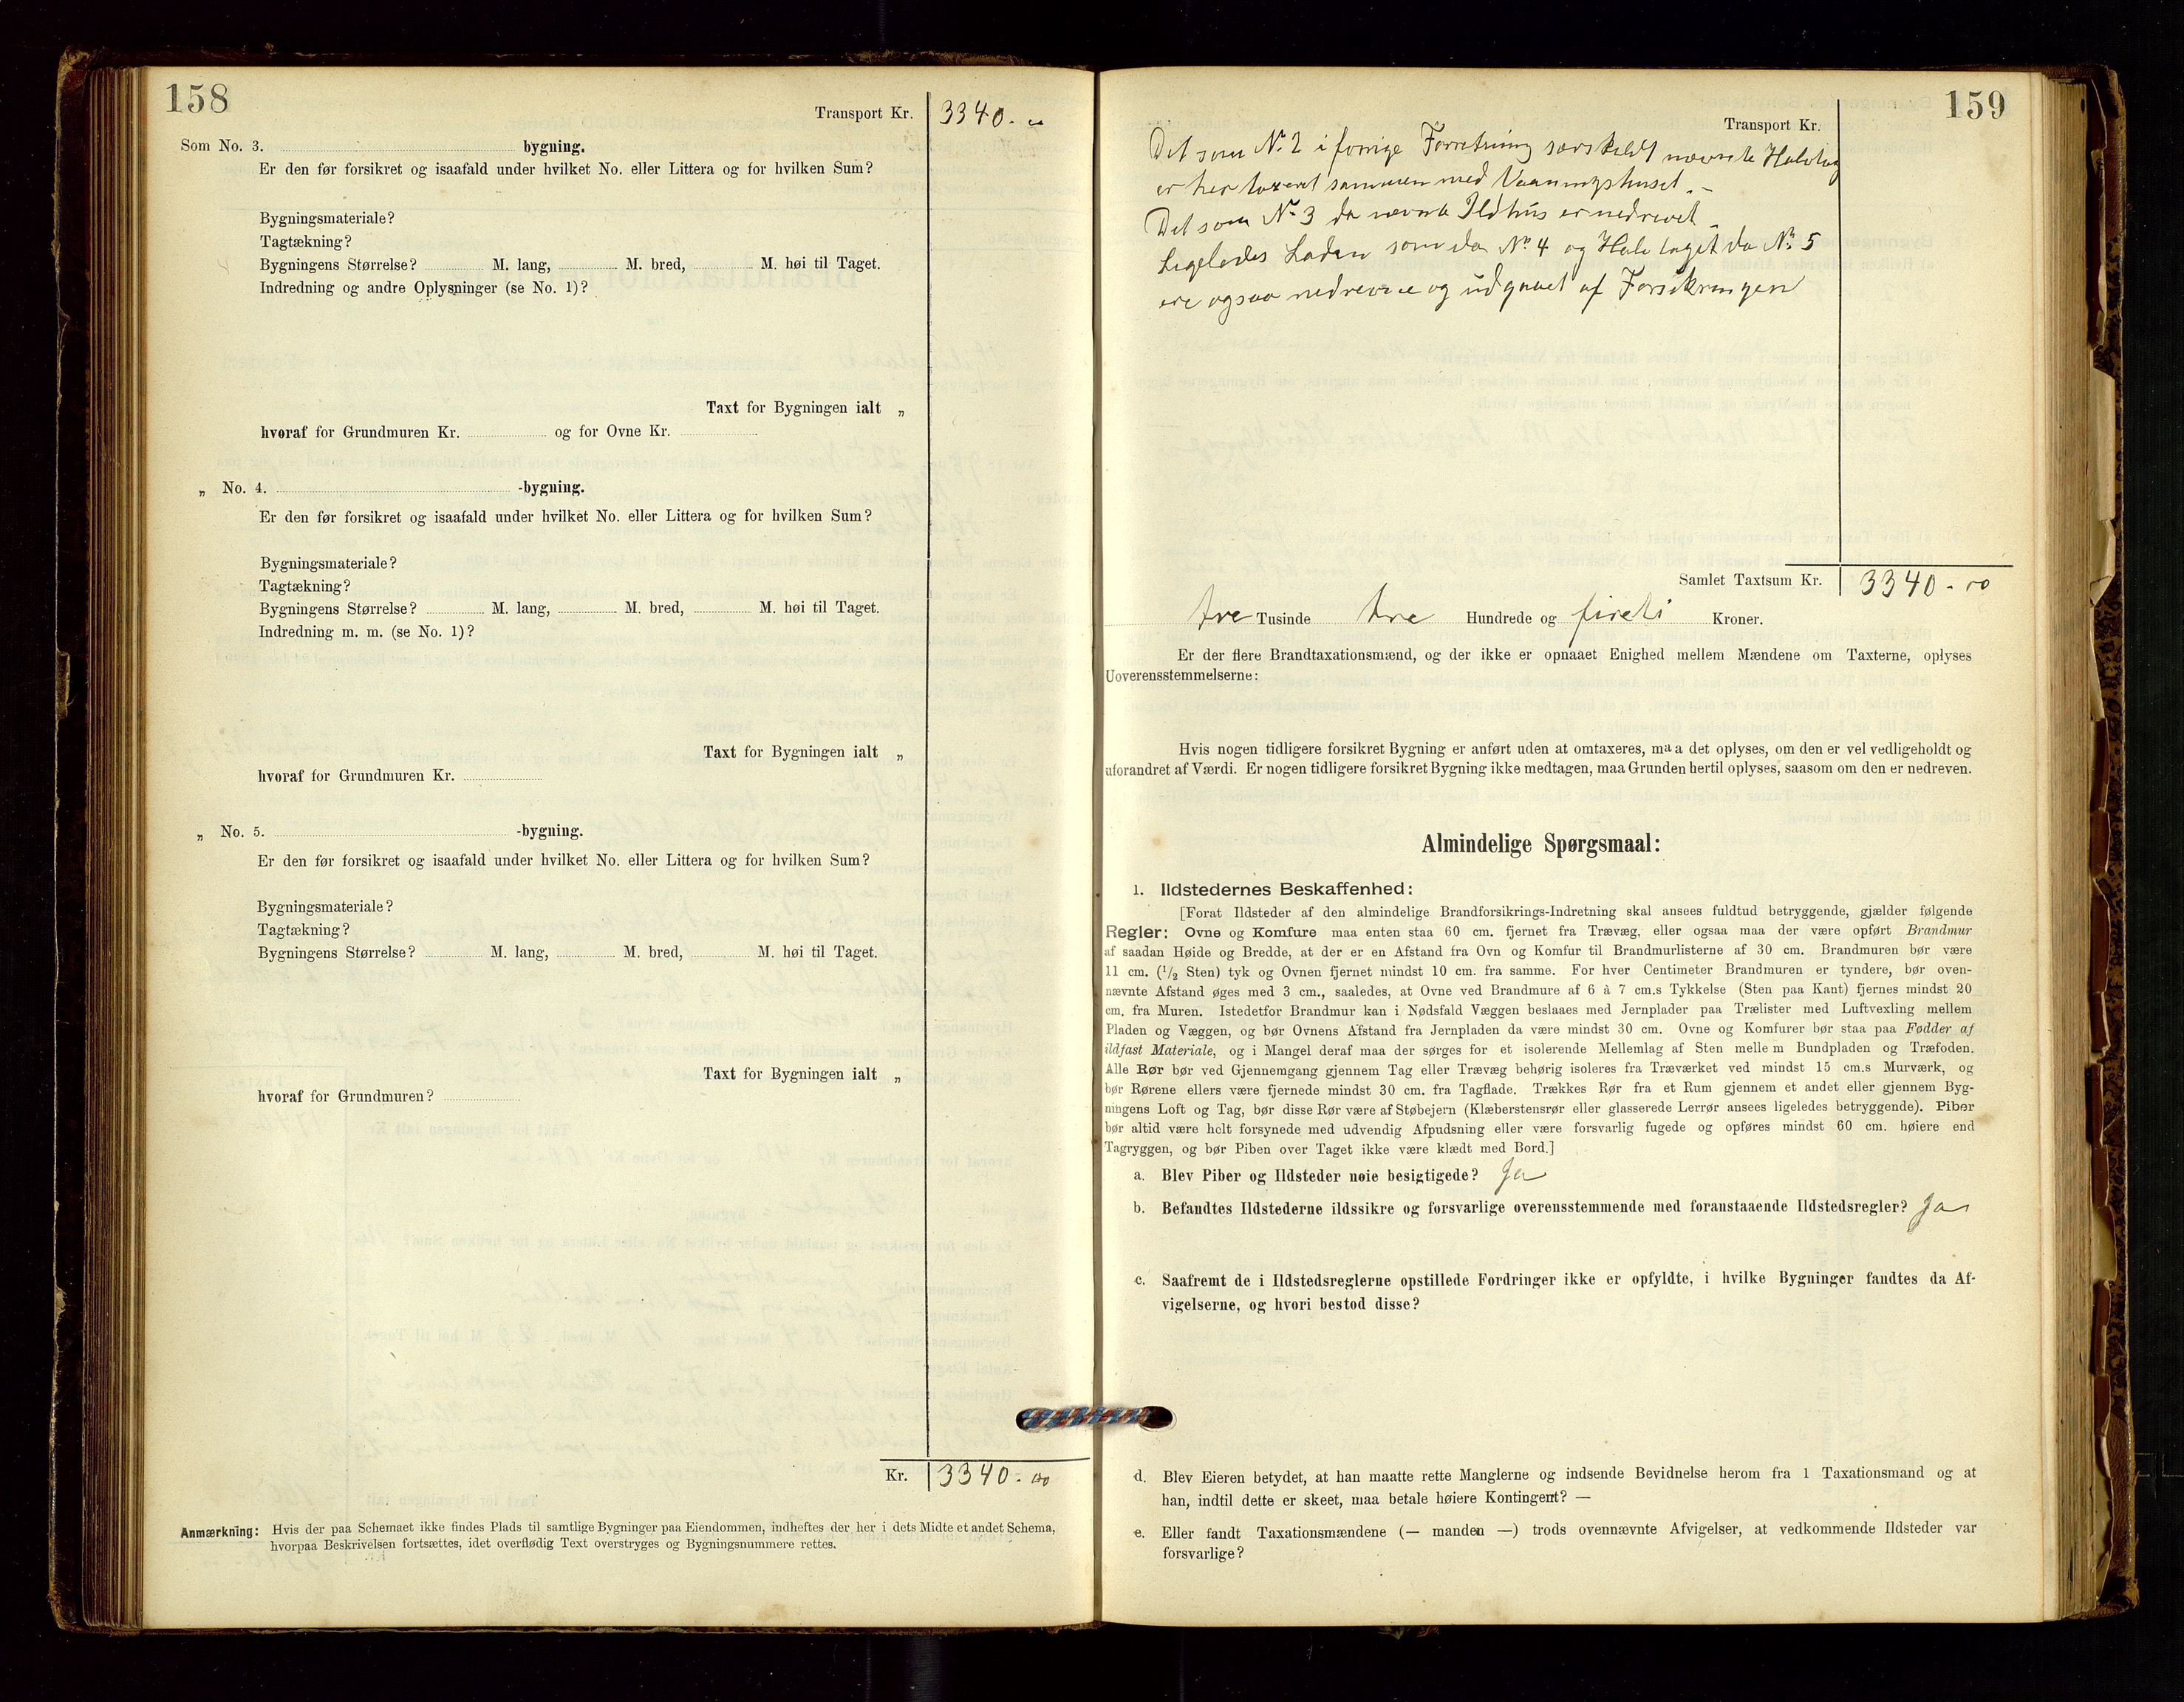 158
Transport Kr. 3340.
Som No. 3. bygning.
Er den før forsikret og isaafald under hvilket No. eller Littera og for hvilken Sum?
Bygningsmateriale?
Tagtækning?
Bygningens Størrelse? M. lang, M. bred, M. høi til Taget.
Indredning og andre Oplysninger (se No. 1)?
Taxt for Bygningen ialt „
hvoraf for Grundmuren Kr. og for Ovne Kr.
„ No. 4. -bygning.
Er den før forsikret og isaafald under hvilket No. eller Littera og for hvilken Sum?
Bygningsmateriale?
Tagtækning?
Bygningens Størrelse? M. lang, M. bred, M. høi til Taget.
Indredning m. m. (se No. 1)?
Taxt for Bygningen ialt „
hvoraf for Grundmuren Kr.
„ No. 5. -bygning.
Er den før forsikret og isaafald under hvilket No. eller Littera og for hvilken Sum?
Bygningsmateriale?
Tagtækning?
Bygningens Størrelse? M. lang, M. bred, M. høi til Taget.
Taxt for Bygningen ialt „
hvoraf for Grundmuren?
Kr. 3340.00
Anmærkning: Hvis der paa Schemaet ikke findes Plads til samtlige Bygninger paa Eiendommen, indheftes der her i dets Midte et andet Schema,
hvorpaa Beskrivelsen fortsættes, idet overflødig Text overstryges og Bygningsnummere rettes.
159
Transport Kr.
Det som No 2 i forrige Forretning særskeldt nævnte Halvtag
er her taxeret sammen med Vaaningshuset. -
Det som No 3 da nævnte Ildhus er nedrevet -
Ligeledes Laden som da No 4 og Halvtaget da No 5
ere ogsaa nedrevne og udgaaet af Forsikringen
Samlet Taxtsum Kr. 3340.00
tre Tusinde tre Hundrede og fireti Kroner.
Er der flere Brandtaxationsmænd, og der ikke er opnaaet Enighed mellem Mændene om Taxterne, oplyses
Uoverensstemmelserne:
Hvis nogen tidligere forsikret Bygning er anført uden at omtaxeres, maa det oplyses, om den er vel vedligeholdt og
uforandret af Værdi. Er nogen tidligere forsikret Bygning ikke medtagen, maa Grunden hertil oplyses, saasom om den er nedreven.
Almindelige Spørgsmaal:
1. Ildstedernes Beskaffenhed:
[Forat Ildsteder af den almindelige Brandforsikrings-Indretning skal ansees fuldtud betryggende, gjælder følgende
Regler: Ovne og Komfure maa enten staa 60 cm. fjernet fra Trævæg, eller ogsaa maa der være opført Brandmur
af saadan Høide og Bredde, at der er en Afstand fra Ovn og Komfur til Brandmurlisterne af 30 cm. Brandmuren bør være
11 cm. (1/2 Sten) tyk og Ovnen fjernet mindst 10 cm. fra samme. For hver Centimeter Brandmuren er tyndere, bør oven-
nævnte Afstand øges med 3 cm., saaledes, at Ovne ved Brandmure af 6 à 7 cm.s Tykkelse (Sten paa Kant) fjernes mindst 20
cm. fra Muren. Istedetfor Brandmur kan i Nødsfald Væggen beslaaes med Jernplader paa Trælister med Luftvexling mellem
Pladen og Væggen, og bør Ovnens Afstand fra Jernpladen da være mindst 30 cm. Ovne og Komfurer bør staa paa Fødder af
ildfast Materiale, og i Mangel deraf maa der sørges for et isolerende Mellemlag af Sten mellem Bundpladen og Træfoden.
Alle Rør bør ved Gjennemgang gjennem Tag eller Trævæg behørig isoleres fra Træværket ved mindst 15 cm.s Murværk, og
bør Rørene ellers være fjernede mindst 30 cm. fra Tagflade. Trækkes Rør fra et Rum gjennem et andet eller gjennem Byg-
ningens Loft og Tag, bør disse Rør være af Støbejern (Klæberstensrør eller glasserede Lerrør ansees ligeledes betryggende). Piber
bør altid være helt forsynede med udvendig Afpudsning eller være forsvarlig fugede og opføres mindst 60 cm. høiere end
Tagryggen, og bør Piben over Taget ikke være klædt med Bord.]
a. Blev Piber og Ildsteder nøie besigtigede? Ja
b. Befandtes Ildstederne ildssikre og forsvarlige overensstemmende med foranstaaende Ildstedsregler? Ja
c. Saafremt de i Ildstedsreglerne opstillede Fordringer ikke er opfyldte, i hvilke Bygninger fandtes da Af-
vigelserne, og hvori bestod disse?
d. Blev Eieren betydet, at han maatte rette Manglerne og indsende Bevidnelse herom fra 1 Taxationsmand og at
han, indtil dette er skeet, maa betale høiere Kontingent? —
e. Eller fandt Taxationsmændene (— manden —) trods ovennævnte Afvigelser, at vedkommende Ildsteder var
forsvarlige?